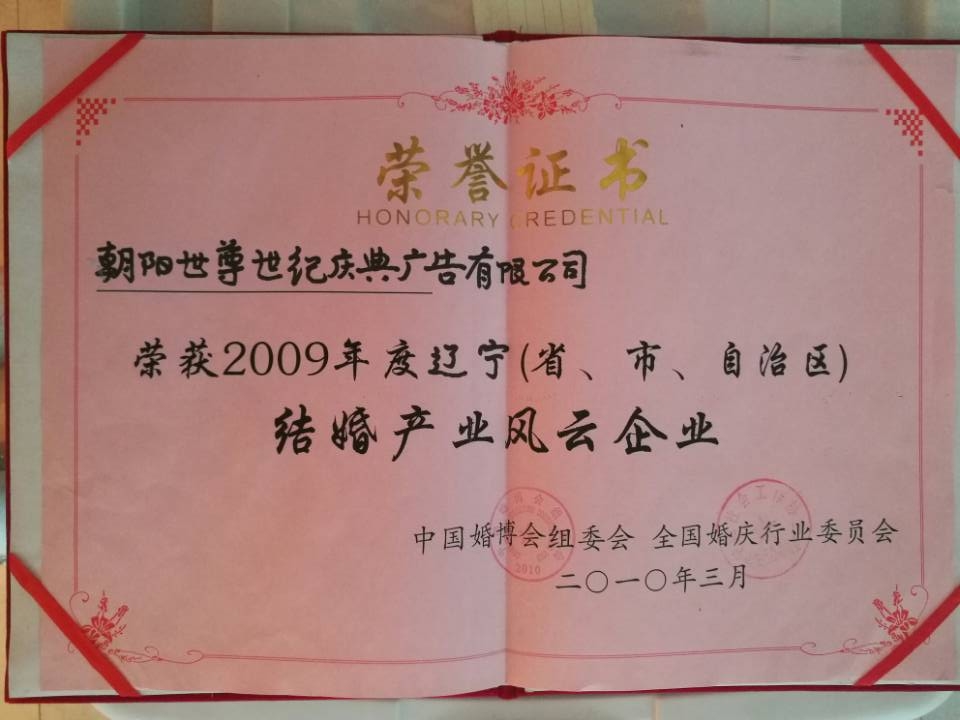 荣誉证书
HONORARY CREDENTIAL
朝阳世尊世纪庆典广告有限公司
荣获2009年度辽宁(省、市、自治区)
结婚产业风云企业
中国婚博会组委会 全国婚庆行业委员会
二〇一〇年三月
2010